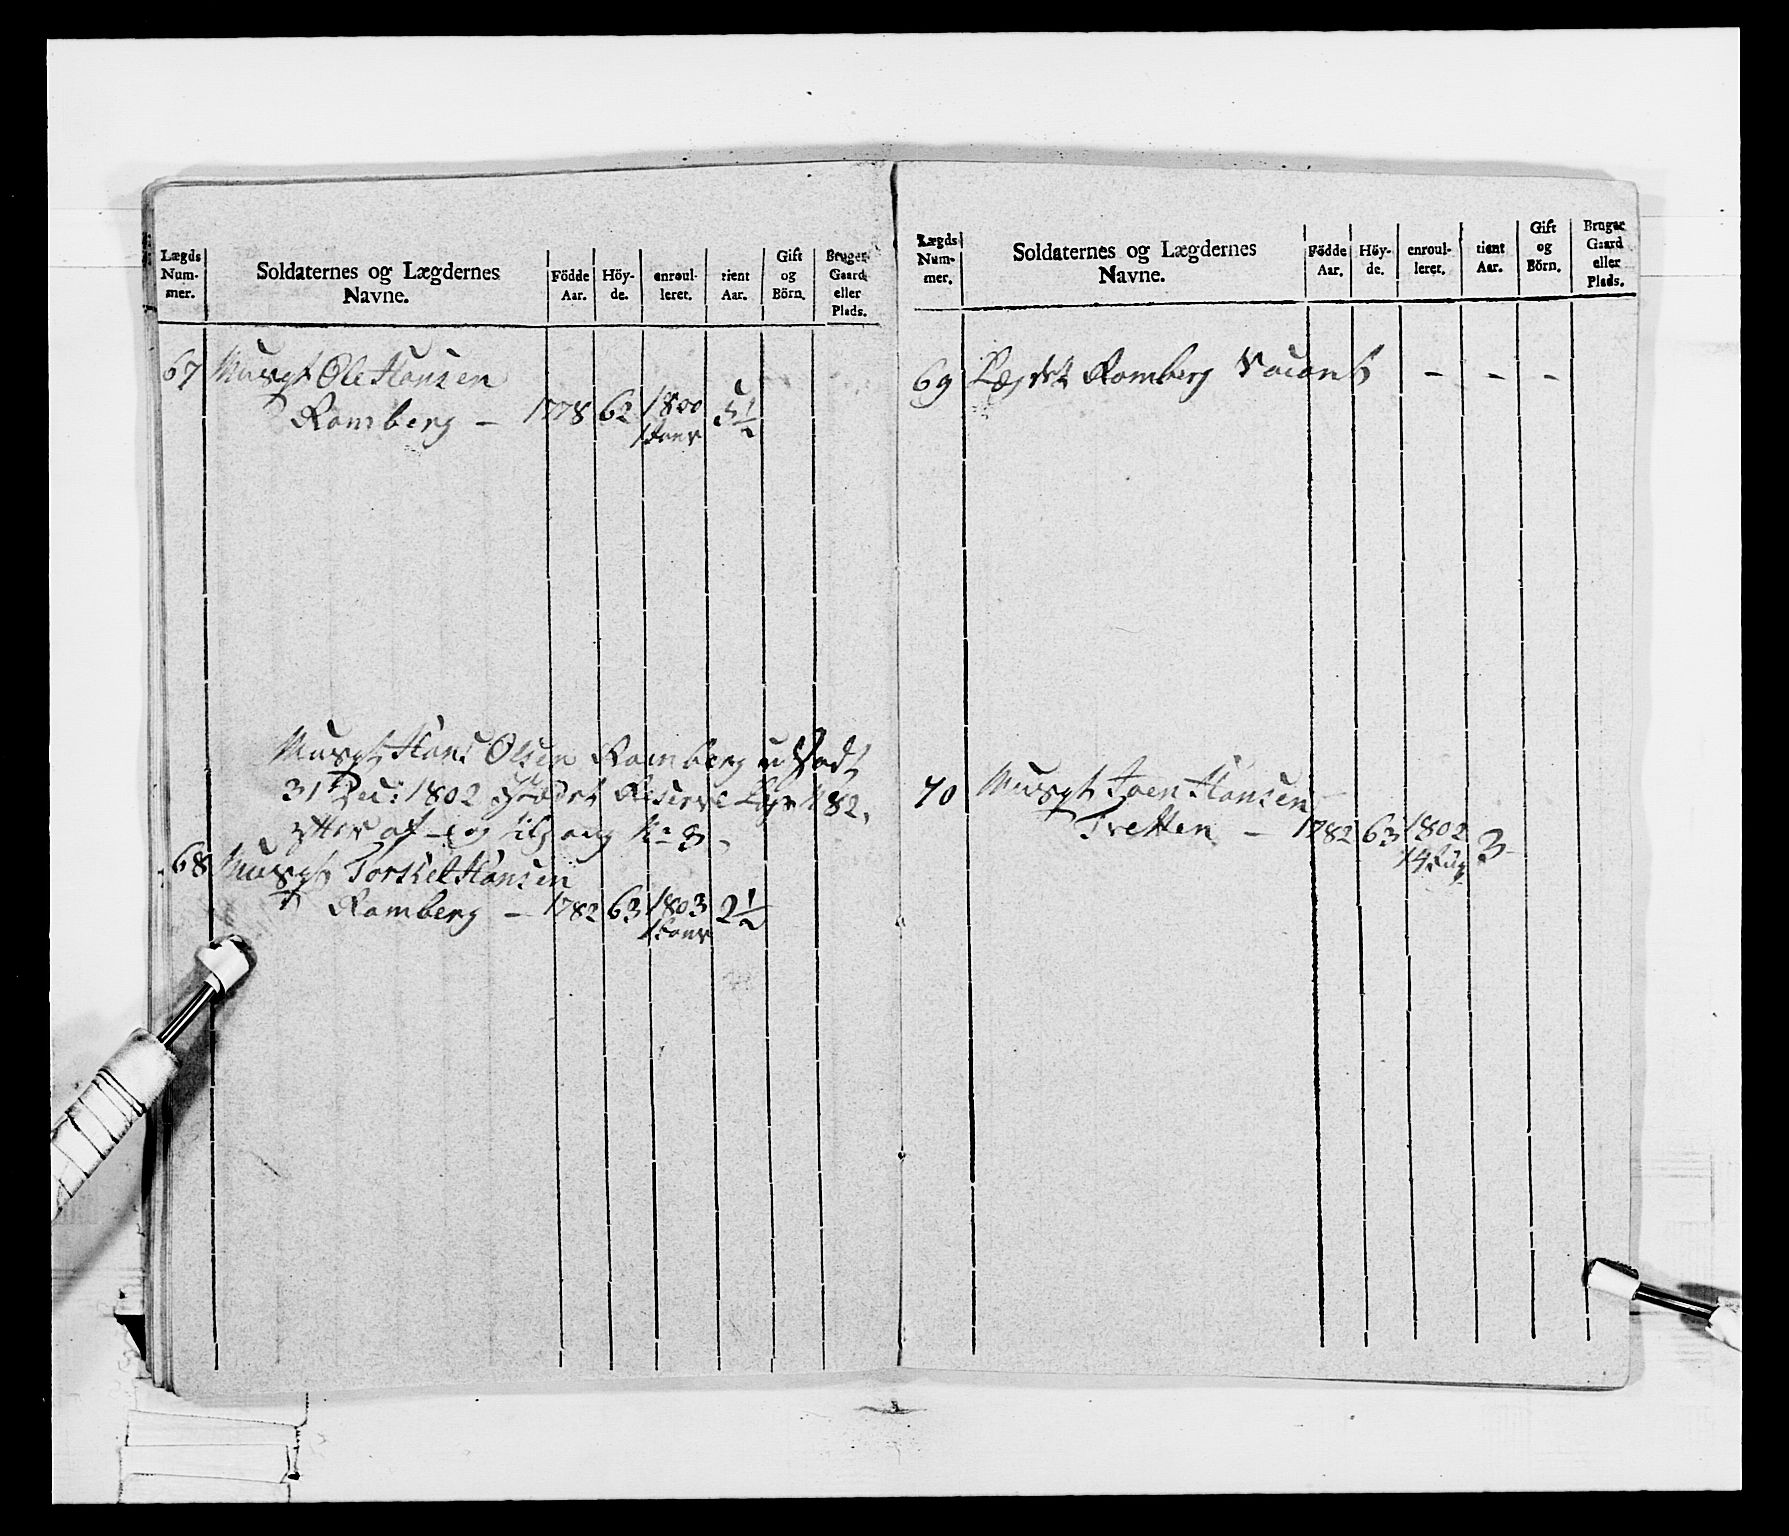 Lægds
Num-
mer.
Soldaternes og Lægdernes
Navne.
Födde
Aar.
Höy-
de.
enroul-
leret.
tient
Aar.
Gift
og
Börn.
Bruger
Gaard
eller
Plads.
67 Musqt Ole Hansen
Ramberg - 1778 62 1800 5½
1 Janr
Musqt Hans Olsen Ramberg
31 Dec: 1802 Reserve 82.
af - og tilgang No 3 -
68 Musqt Torskel Hansen
Ramberg - 1782 63 1803 2½
1 Janr
Lægds
Num-
mer.
Soldaternes og Lægdernes
Navne.
Födde
Aar.
Höy-
de.
enroul-
leret.
tient
Aar.
Gift
og
Börn.
Bruger
Gaard
eller
Plads.
69 Lægdet Ramberg Vacant - - -
70 Musqt Joen Hansen
Tretten - 1782 63 1802 3 -
14